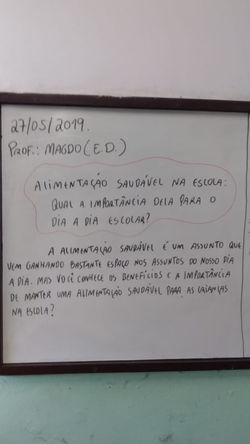 27/05/2019.
PROF.: MAGDO (E.D.)
ALIMENTAÇÃO SAUDÁVEL NA ESCOLA:
QUAL A IMPORTÂNCIA DELA PARA O
DIA A DIA ESCOLAR?
A ALIMENTAÇÃO SAUDÁVEL É UM ASSUNTO QUE
VEM GANHANDO BASTANTE ESPAÇO NOS ASSUNTOS DO NOSSO DIA
A DIA. MAS VOCÊ CONHECE OS BENEFÍCIOS E A IMPORTÂNCIA
DE MANTER UMA ALIMENTAÇÃO SAUDÁVEL PARA AS CRIANÇAS
NA ESCOLA?